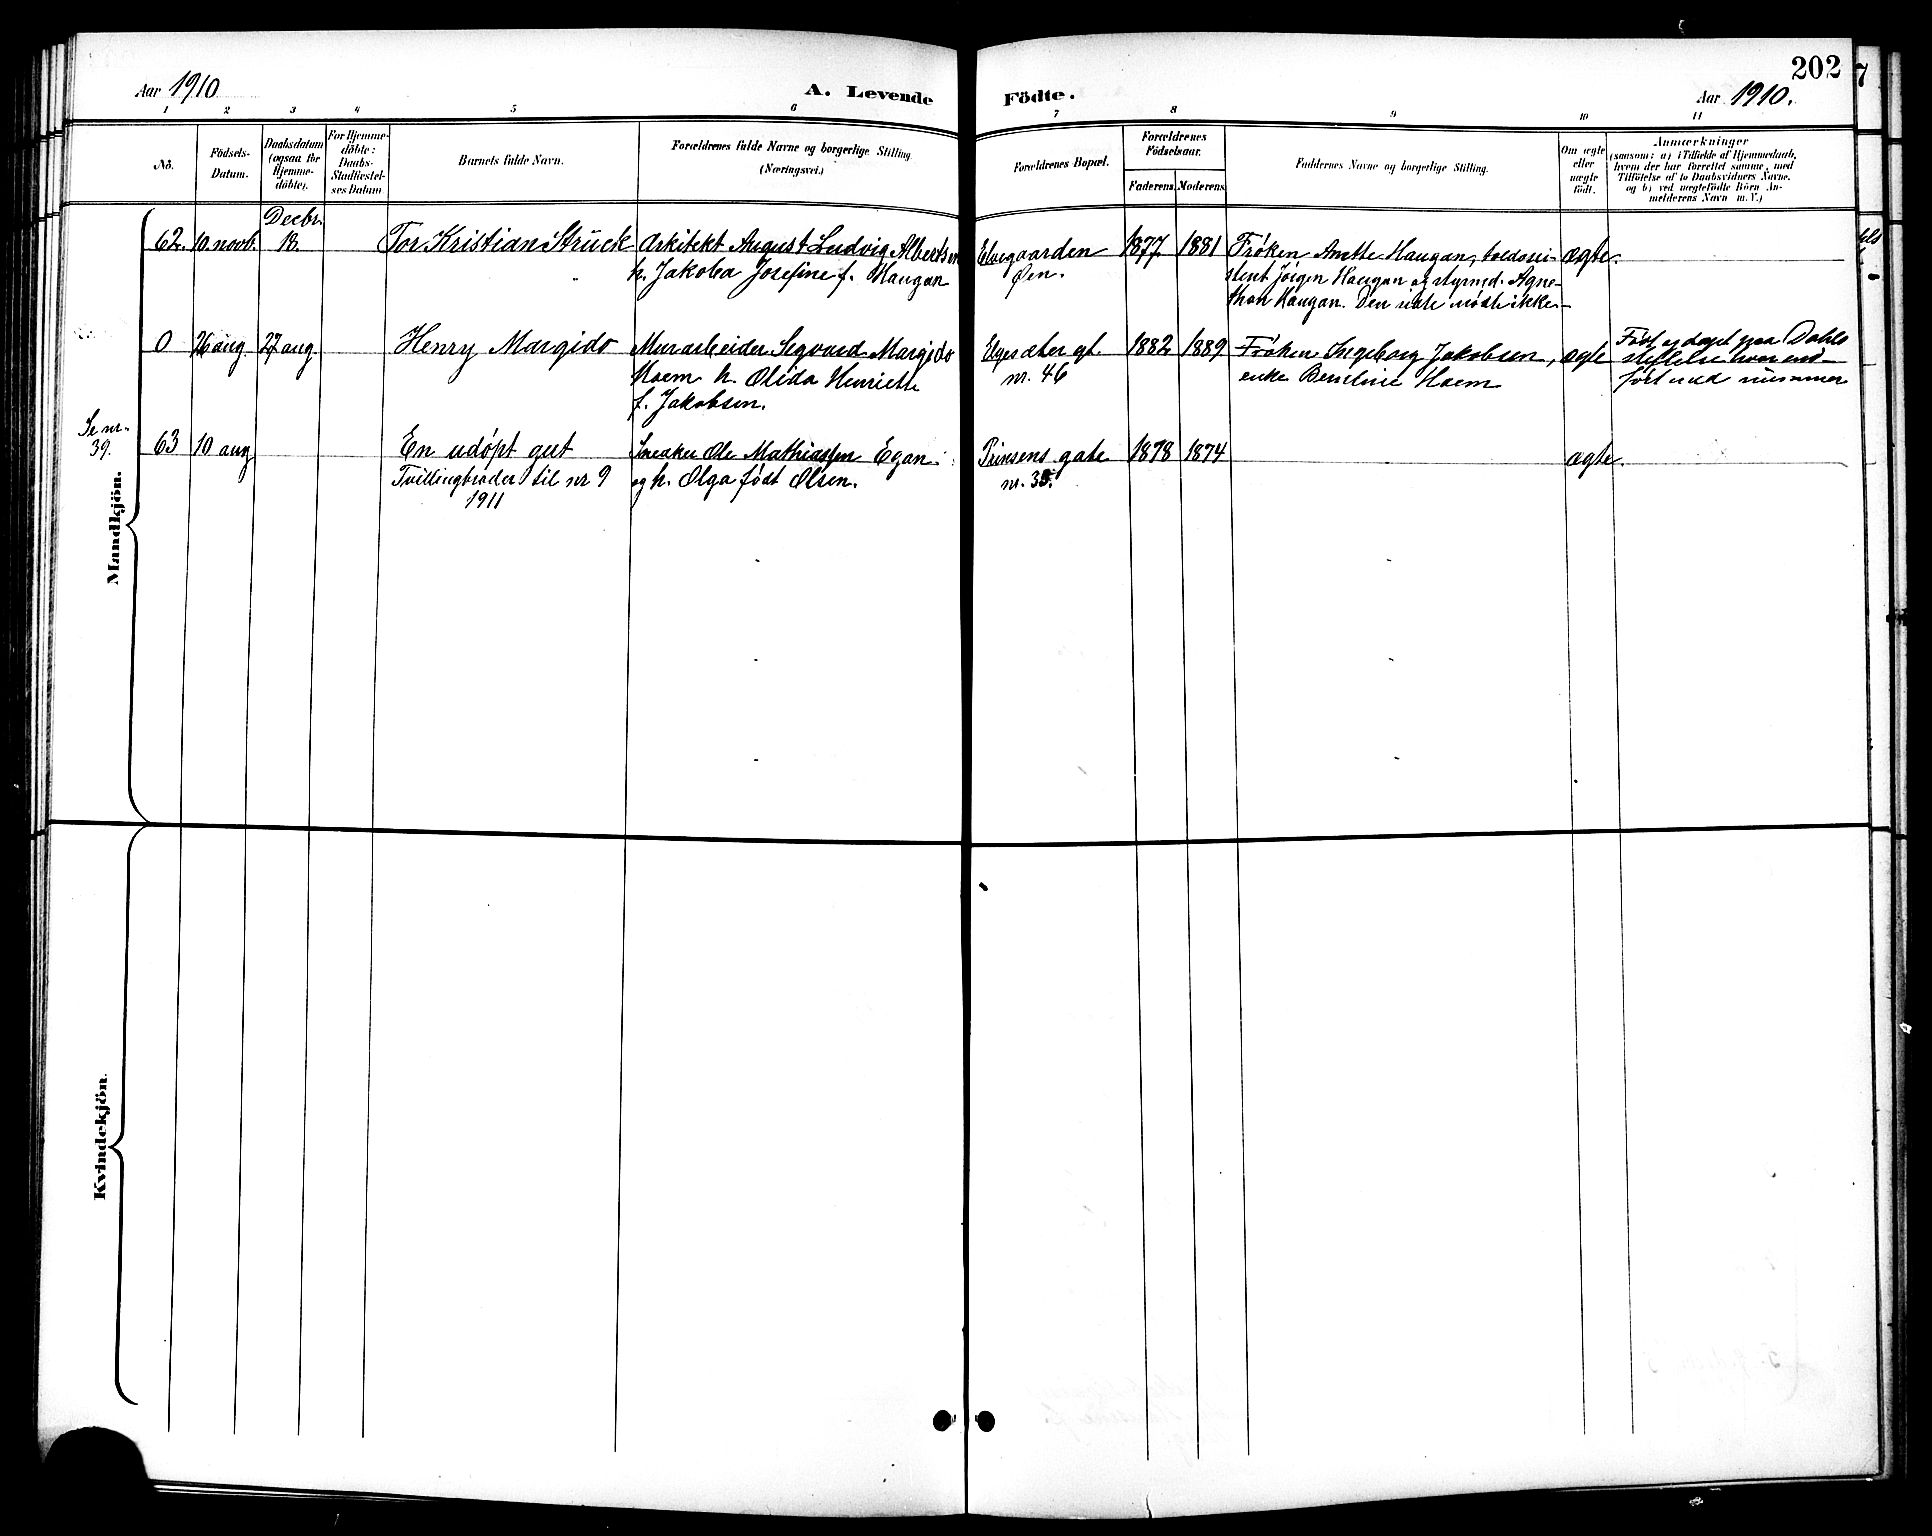 202
Aar 1910
A. Levende Födte.
Aar 1910.
1 2 3 4 5 6 7 8 9 10 11
No.
Födsels-
Datum.
Daabsdatum
(ogsaa for
Hjemme-
döbte).
For Hjemme-
döbte:
Daabs-
Stadfæstel-
ses Datum
Barnets fulde Navn.
Forældrenes fulde Navne og borgerlige Stilling
(Næringsvei.)
Forældrenes Bopæl.
Forældrenes
Födselsaar.
Faderens. Moderens.
Faddernes Navne og borgerlige Stilling.
Om ægte
eller
uægte
födt.
Anmærkninger
(saasom: a) i Tilfælde af Hjemmedaab,
hvem der har forrettet samme, med
Tilföielse af to Daabsvidners Navne.
og b) ved uægtefödte Börn An-
melderens Navn m. V.)
Mandkjön.
62. 10. novb. Decbr. 18. Tor Kristian Struck
Arkitekt August Ludvig Albertsen
h. Jakoba Josefine f. Haugan
Elvegaarden
Øen.
1877 1881
Frøken Anette Haugan, toldassi-
stent Jörgen Haugan og styrmd. Agne-
thon Haugan. Den siste mødte ikke
ægte.
0 26 aug 27 aug. Henry Margido
Murarbeider Sigvard Margido
Hoem h. Olida Henriette
f. Jakobsen.
Elgesæter gt.
nr. 46
1882 1889
Frøken Ingeborg Jakobsen,
enke Berntine Hoem
ægte
Født og døpt paa Dahls
stiftelse hvor end
ført med nummer
Se nr.
39.
63 10 aug
En udøpt gut
Tvillingbroder til nr 9
1911
Snedker Ole Mathiassen Egan
og h. Olga født Olsen.
Prinsens gate
nr. 35.
1878 1874
ægte.
Kvindekjön.